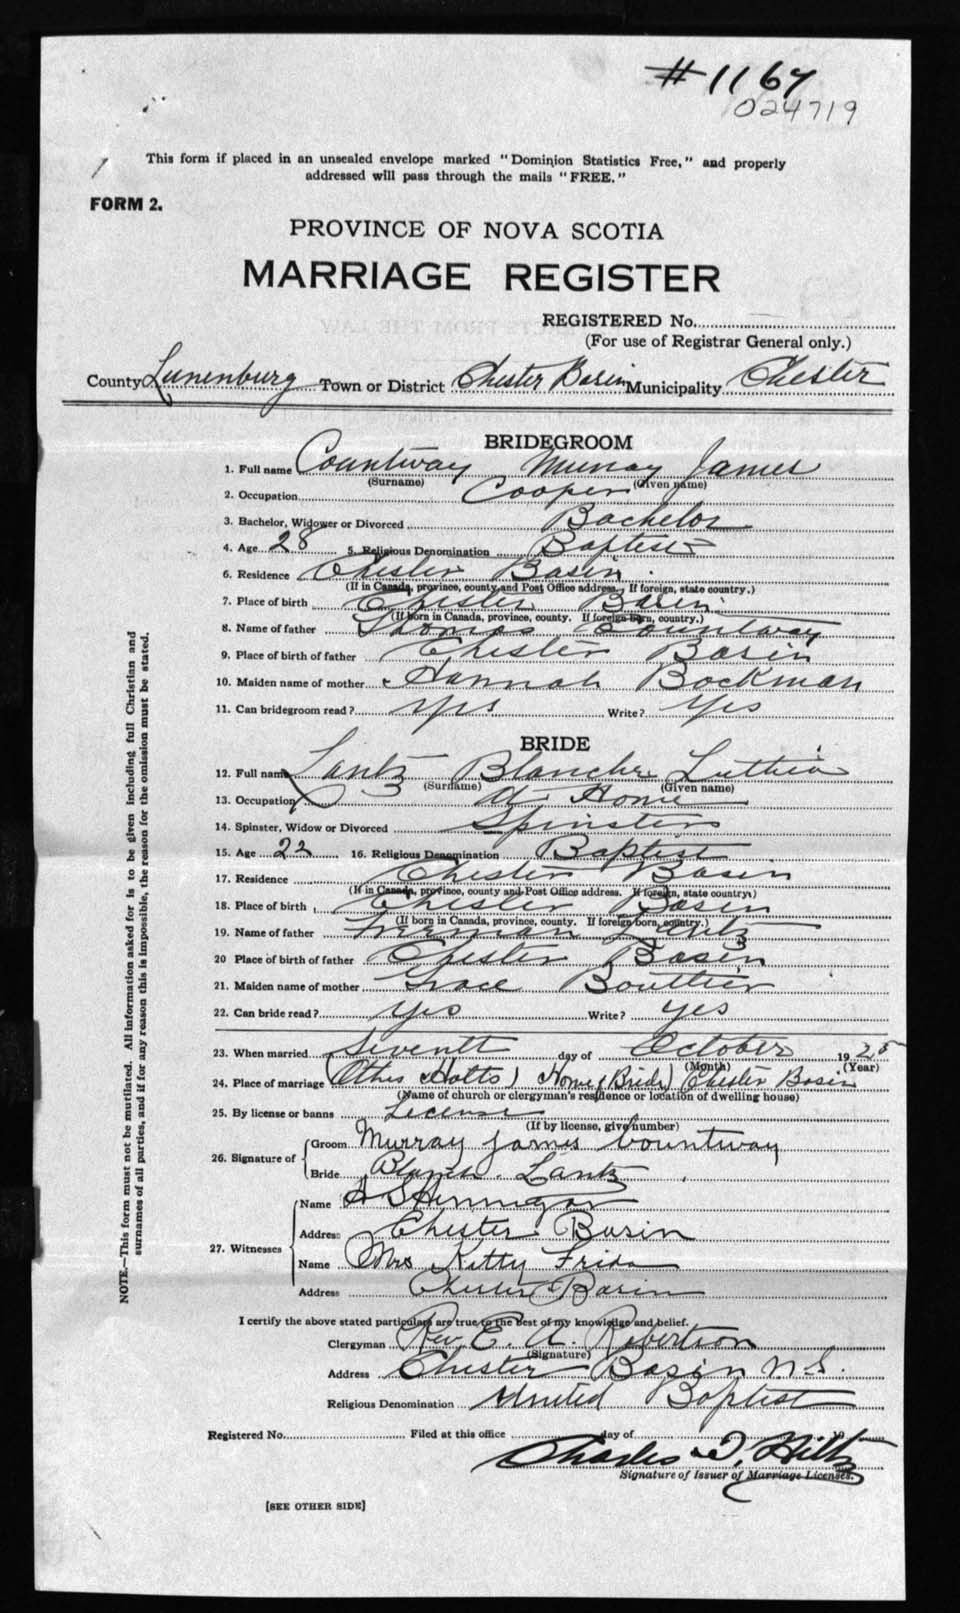 #1167
024719
This form if placed in an unsealed envelope marked "Dominion Statistics Free," and properly
addressed will pass through the mails "FREE."
FORM 2.
PROVINCE OF NOVA SCOTIA
MARRIAGE REGISTER
REGISTERED No.
(For use of Registrar General only.)
County Lunenburg Town or District Chester Basin Municipality Chester
BRIDEGROOM
1. Full name Countway Murray James
(Surname) (Given name)
2. Occupation Cooper
3. Bachelor, Widower or Divorced Bachelor
4. Age 28 5. Religious Denomination Baptist
6. Residence Chester Basin
(If in Canada, province, county and Post Office address. If foreign, state country.)
7. Place of birth Chester Basin
(If born in Canada, province, county. If foreign born, country.)
8. Name of father Thomas Countway
9. Place of birth of father Chester Basin
10. Maiden name of mother Hannah Bockman
11. Can bridegroom read? Yes Write? Yes
BRIDE
12. Full name Lantz Blanche Luthia
(Surname) (Given name)
13. Occupation At Home
14. Spinster, Widow or Divorced Spinster
15. Age 22 16. Religious Denomination Baptist
17. Residence Chester Basin
(If in Canada, province, county and Post Office address. If foreign, state country.)
18. Place of birth Chester Basin
(If born in Canada, province, county. If foreign born, country.)
19. Name of father Freeman Lantz
20 Place of birth of father Chester Basin
21. Maiden name of mother Grace Boutlier
22. Can bride read? Yes Write? Yes
23. When married Seventh day of October 1925
(Month) (Year)
24. Place of marriage Home (Bride) Chester Basin
(Name of church or clergyman's residence or location of dwelling house)
25. By license or banns License
(If by license, give number)
26. Signature of Groom Murray James Countway
Bride Blanch Lantz
27. Witnesses Name
Address Chester Basin
Name Mrs Kitty
Address Chester Basin
I certify the above stated particulars are true to the best of my knowledge and belief.
Clergyman Rev. E. A. Robertson
(Signature)
Address Chester Basin N.S.
Religious Denomination United Baptist
Registered No. Filed at this office day of 19
Charles T. Hiltz
Signature of Issuer of Marriage Licenses.
[SEE OTHER SIDE]
NOTE.—This form must not be mutilated. All information asked for is to be given including full Christian and
surnames of all parties, and if for any reason this is impossible, the reason for the omission must be stated.